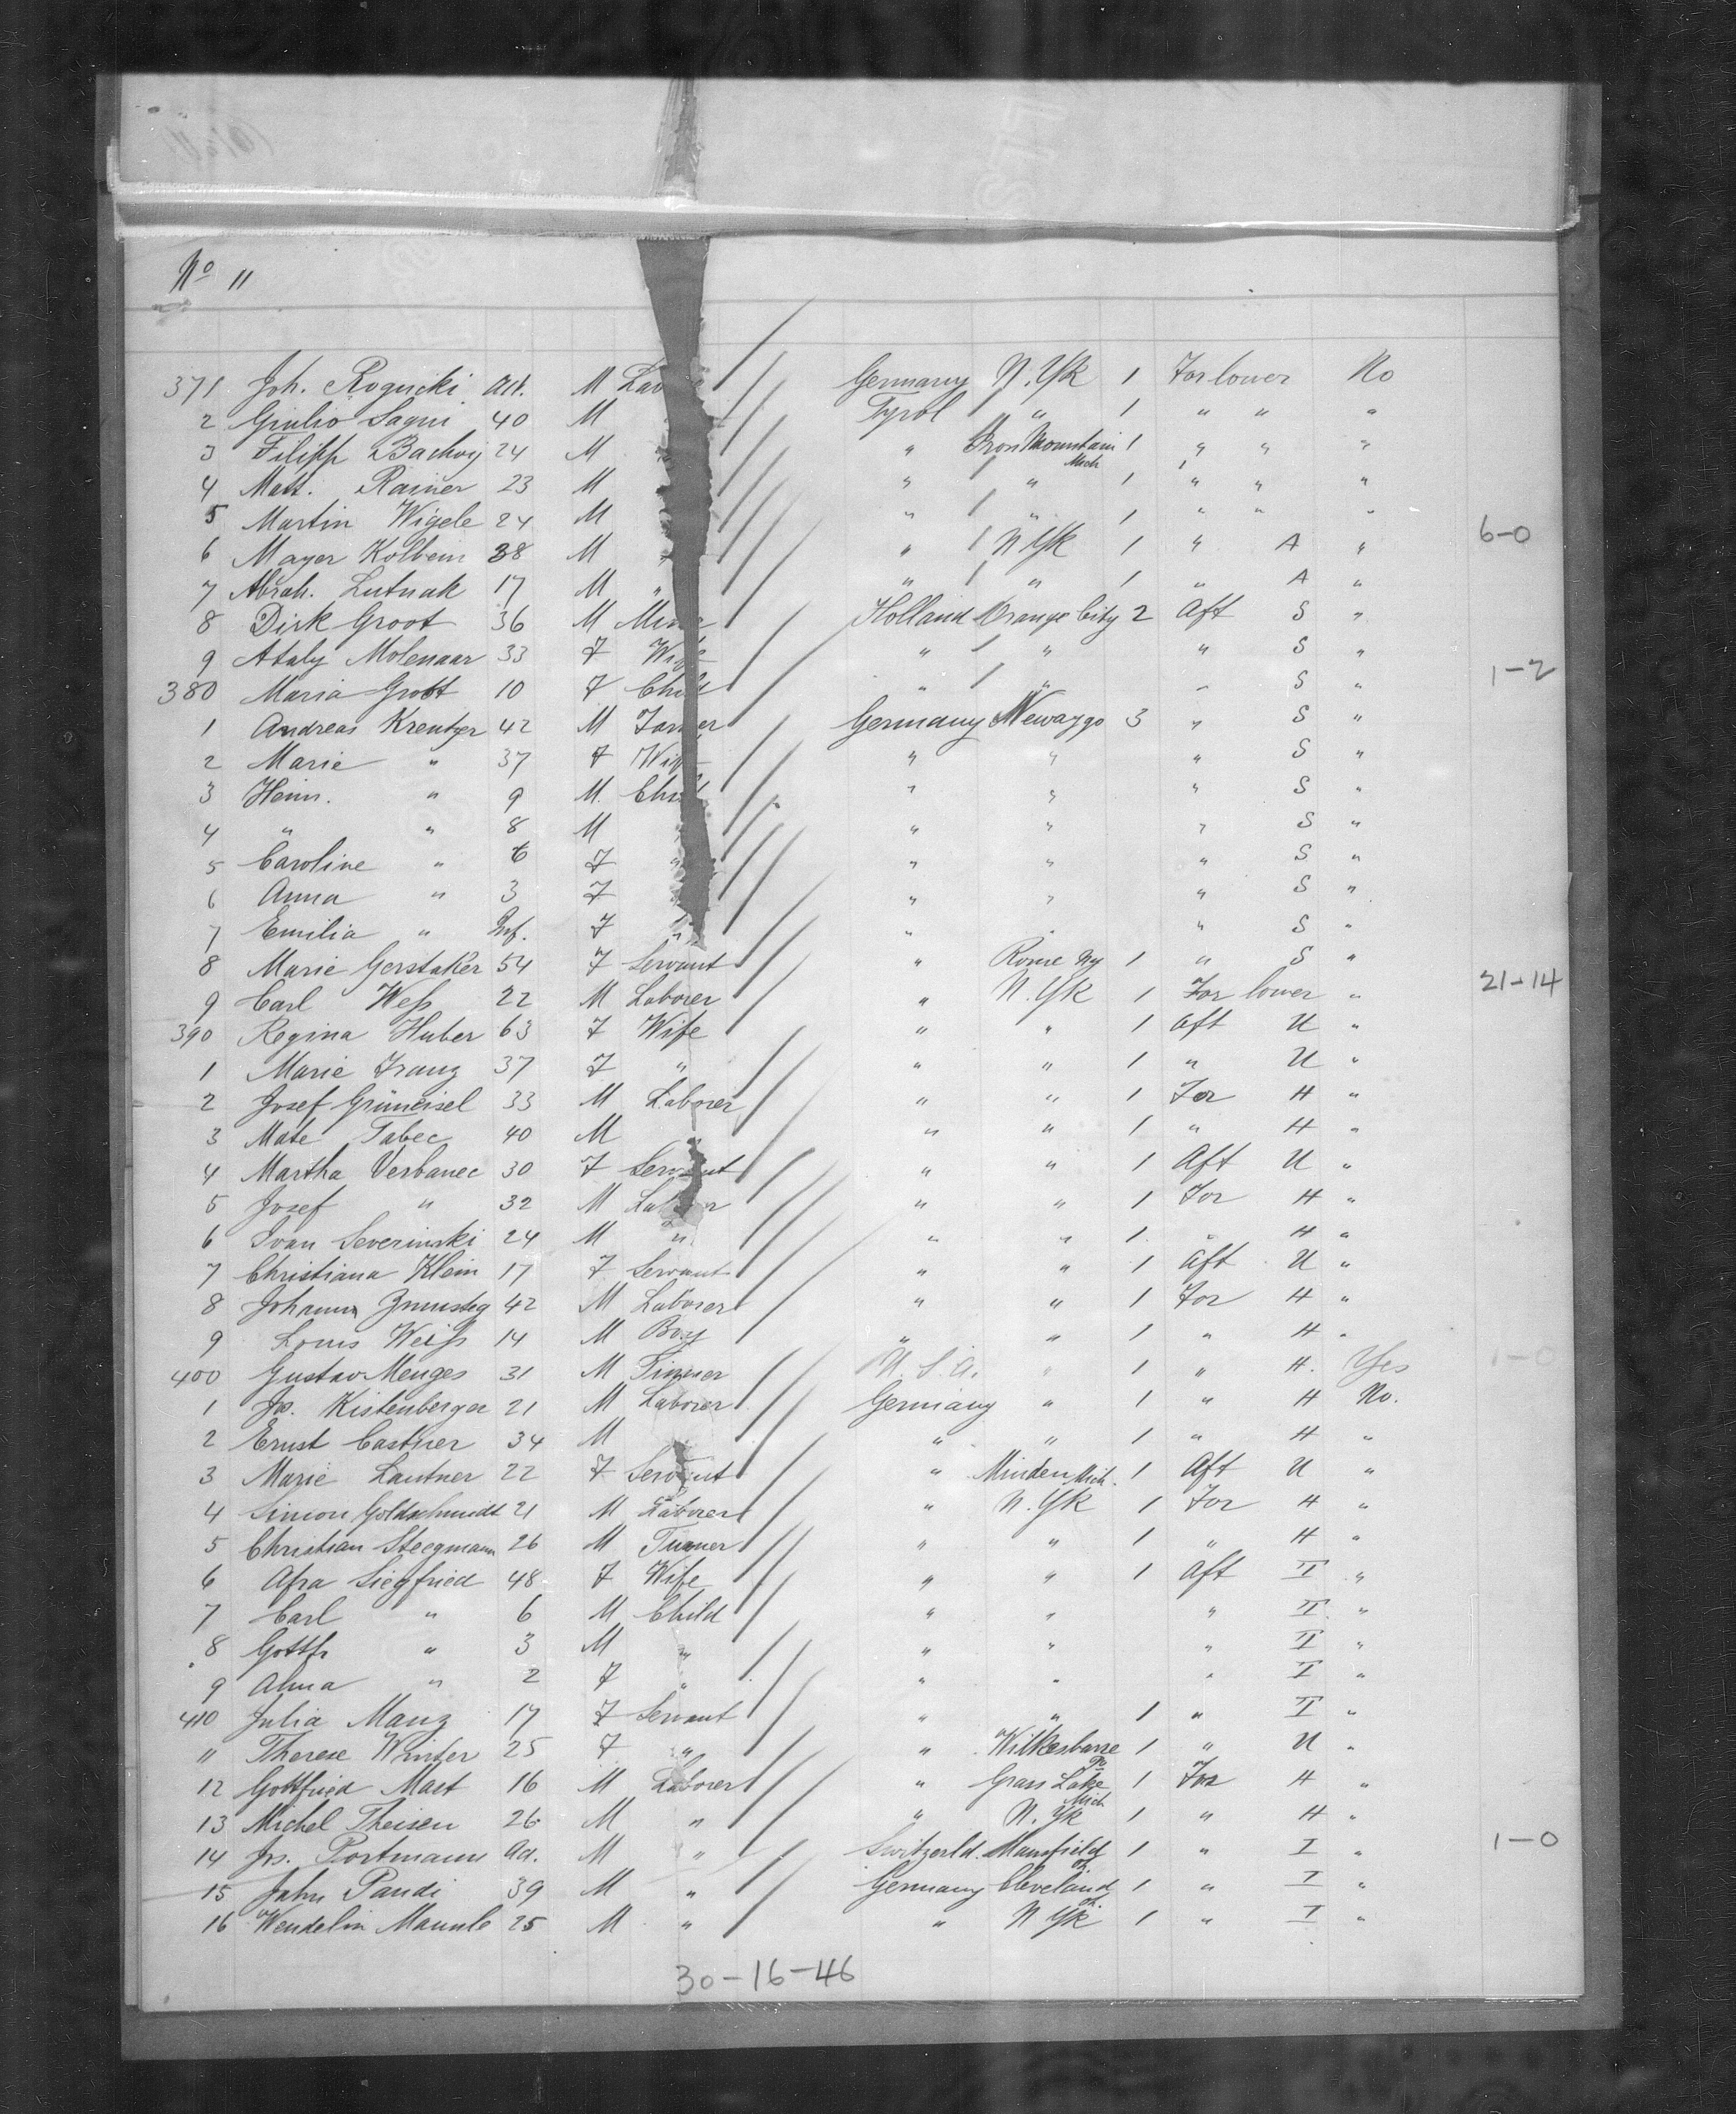 No 11
371 Joh. Rogucki ad. M Lab Germany N.Yk 1 For lower No
2 Giulio Sagui 40 M Tyrol " 1 " " "
3 Filipp Bachvij 24 M " " Iron Mountain Mich 1 " " "
4 Matt. Rainer 23 M " " 1 " " "
5 Martin Wigele 24 M " " 1 " " "
6 Mayer Kolbein 38 M " " N Yk 1 " A " 6-0
7 Abrah. Lutnak 17 M " " " 1 " A "
8 Dirk Groot 36 M Mine Holland Orange City 2 Aft S "
9 Ataly Molenaar 33 F Wife " " " S "
380 Maria Grott 10 F Child " " " S " 1-2
1 Andreas Kreutzer 42 M Farmer Germany Newaygo 3 " S "
2 Marie " 37 F Wife " " " S "
3 Heinr. " 9 M. Child " " " S "
4 " " 8 M " " " " S "
5 Caroline " 6 F " " " " S "
6 Anna " 3 F " " " S "
7 Emilia " Inf. F " " " " S "
8 Marie Gerstaker 54 F Servant " Rome Ny 1 " S "
9 Carl Weß 22 M Laborer " N.Yk 1 For lower " 21-14
390 Regina Huber 63 F Wife " " 1 Aft U "
1 Marie Franz 37 F " " " 1 " U "
2 Josef Grüneisel 33 M Laborer " " 1 For H "
3 Mate Tabec 40 M " " " 1 " H "
4 Martha Verbanec 30 F Servant " " 1 Aft U "
5 Josef " 32 M Laborer " " 1 For H "
6 Ivan Severinski 24 M " " " 1 " H "
7 Christiana Klein 17 F Servant " " 1 Aft U "
8 Johann Zmusteg 42 M Laborer " " 1 For H "
9 Louis Weiß 14 M Boy " " 1 " H "
400 Gustav Menges 31 M Tinner U.S.A. " 1 " H. Yes 1-0
1 Jos. Kistenberger 21 M Laborer Germany " 1 " H No.
2 Ernst Castner 34 M " " 1 " H "
3 Marie Lautner 22 F Servant " Minden Mich. 1 Aft U "
4 Simon Goldschmidt 21 M Laborer " N.Yk 1 For H "
5 Christian Steegmann 26 M Turner " " 1 " H "
6 Afra Siegfried 48 F Wife " " 1 Aft I "
7 Carl " 6 M Child " " " I "
8 Gottfr " 3 M " " " " I "
9 Alma " 2 F " " " " I "
410 Julia Manz 17 F Servant " " 1 " I "
11 Therese Winter 25 F " " Wilkesbarre Pa 1 " U "
12 Gottfried Mast 16 M Laborer " Grass Lake Mich 1 For H "
13 Michel Theisen 26 M " " N.Yk 1 " H "
14 Jos. Portmann ad. M " Switzerld. Mansfield Oh. 1 " I " 1-0
15 John Pandi 39 M " Germany Cleveland Oh. 1 " I "
16 Wendelin Maunle 25 M " " N Yk 1 " I "
30-16-46